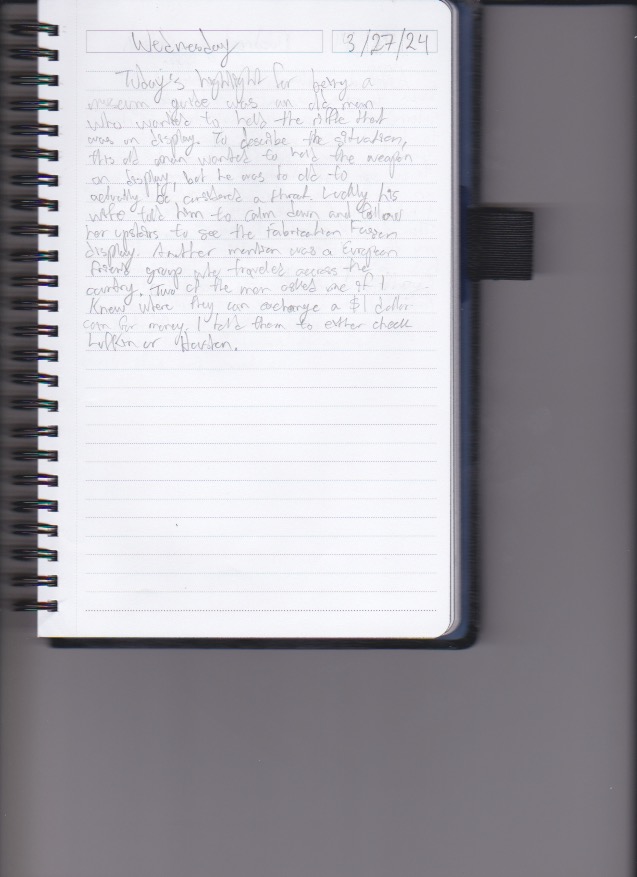 Wednesday 3/27/24
Today's highlight for being a
museum guide was an old man
who wanted to held the rifle that
was on display. To describe the situation,
this old man wanted to held the weapon
on display, but he was to old to
actually be considered a threat. Luckly his
wife told him to calm down and follow
her upstairs to see the fabrication
display. Another mention was a European
group who traveled across the
country. Two of the man asked me if I
knew where they can exchange a $1 dollar
coin for money. I told them to either check
Lufkin or Houston.